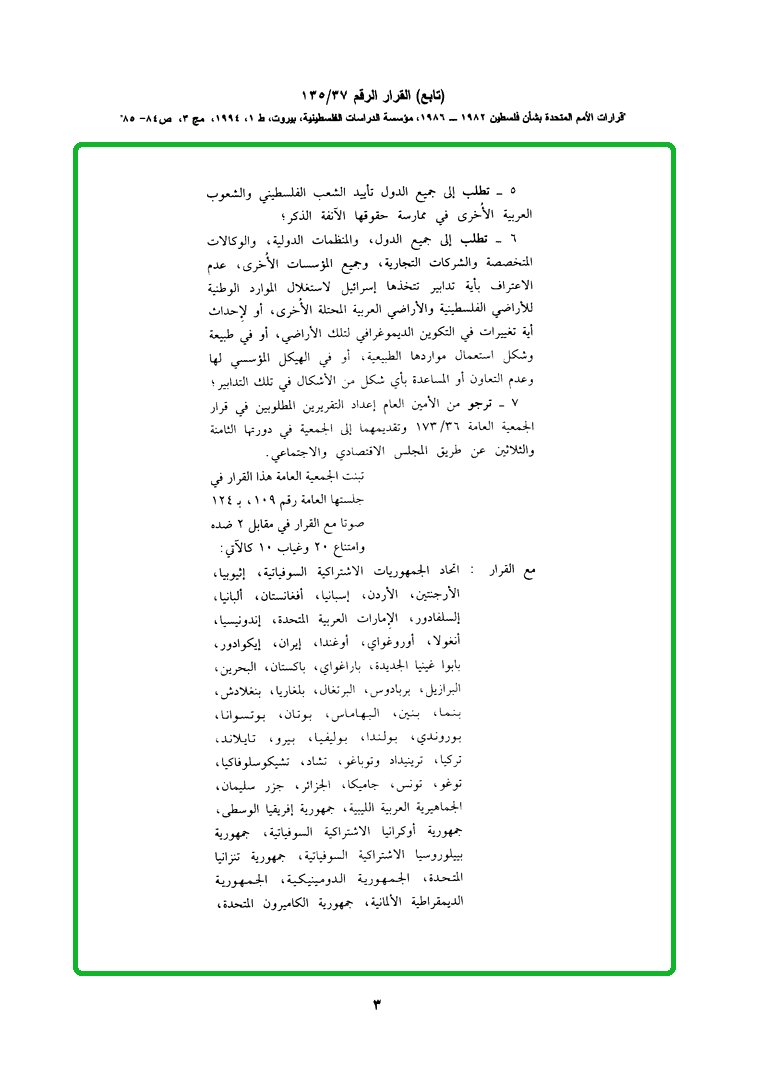 (تابع) القرار الرقم ١٣٥/٣٧
"قرارات الأمم المتحدة بشأن فلسطين ١٩٨٢ ــ ١٩٨٦، مؤسسة الدراسات الفلسطينية، بيروت، ط ١، ١٩٩٤، مج ٣، ص٨٤- ٨٥"
٥ ــ تطلب إلى جميع الدول تأييد الشعب الفلسطيني والشعوب
العربية الأُخرى في ممارسة حقوقها الآنفة الذكر؛
٦ ــ تطلب إلى جميع الدول، والمنظمات الدولية، والوكالات
المتخصصة والشركات التجارية، وجميع المؤسسات الأُخرى، عدم
الاعتراف بأية تدابير تتخذها إسرائيل لاستغلال الموارد الوطنية
للأراضي الفلسطينية والأراضي العربية المحتلة الأُخرى، أو لإحداث
أية تغييرات في التكوين الديموغرافي لتلك الأراضي، أو في طبيعة
وشكل استعمال مواردها الطبيعية، أو في الهيكل المؤسسي لها
وعدم التعاون أو المساعدة بأي شكل من الأشكال في تلك التدابير؛
٧ ــ ترجو من الأمين العام إعداد التقريرين المطلوبين في قرار
الجمعية العامة ١٧٣/٣٦ وتقديمهما إلى الجمعية في دورتها الثامنة
والثلاثين عن طريق المجلس الاقتصادي والاجتماعي.
تبنت الجمعية العامة هذا القرار في
جلستها العامة رقم ١٠٩، بـ ١٢٤
صوتا مع القرار في مقابل ٢ ضده
وامتناع ٢٠ وغياب ١٠ كالآتي:
مع القرار : اتحاد الجمهوريات الاشتراكية السوفياتية، إثيوبيا،
الأرجنتين، الأردن، إسبانيا، أفغانستان، ألبانيا،
إلسلفادور، الإمارات العربية المتحدة، إندونيسيا،
أنغولا، أوروغواي، أوغندا، إيران، إيكوادور،
بابوا غينيا الجديدة، باراغواي، باكستان، البحرين،
البرازيل، بربادوس، البرتغال، بلغاريا، بنغلادش،
بنما، بنين، البهاماس، بوتان، بوتسوانا،
بوروندي، بولندا، بوليفيا، بيرو، تايلاند،
تركيا، ترينيداد وتوباغو، تشاد، تشيكوسلوفاكيا،
توغو، تونس، جاميكا، الجزائر، جزر سليمان،
الجماهيرية العربية الليبية، جمهورية إفريقيا الوسطى،
جمهورية أوكرانيا الاشتراكية السوفياتية، جمهورية
بييلوروسيا الاشتراكية السوفياتية، جمهورية تنزانيا
المتحدة، الجمهورية الدومينيكية، الجمهورية
الديمقراطية الألمانية، جمهورية الكاميرون المتحدة،
٣